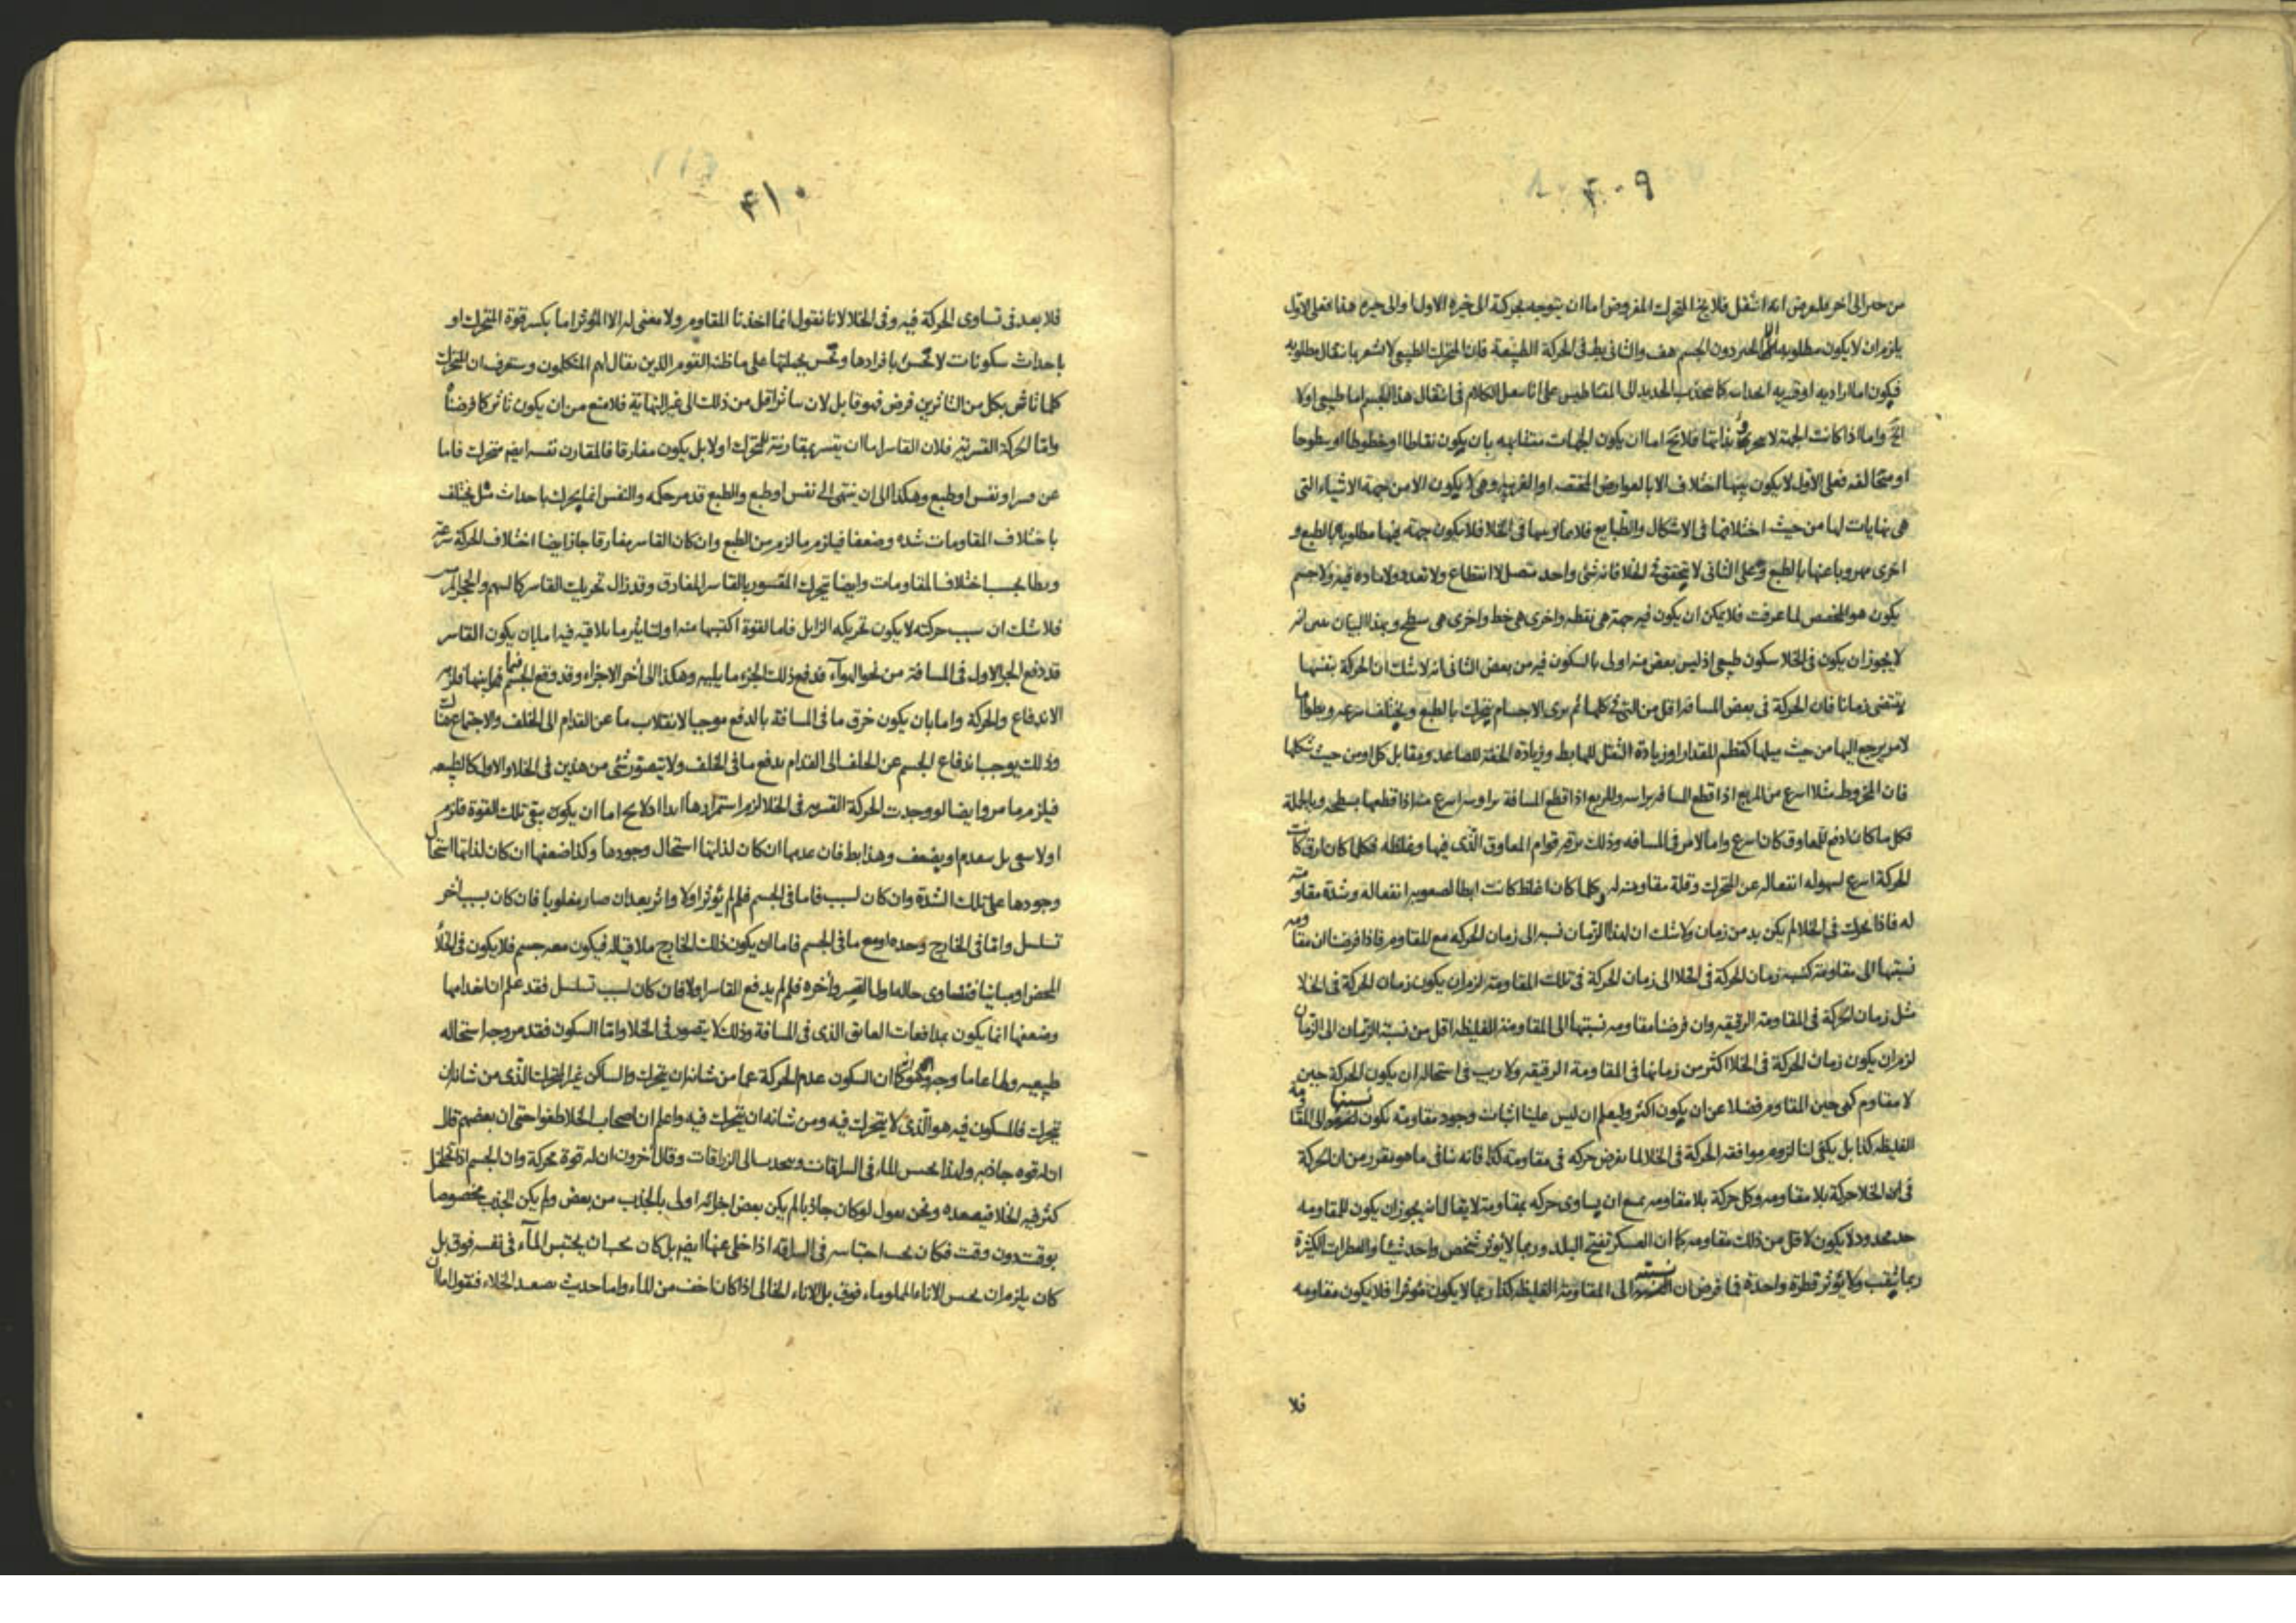 ٤٠٩
من حيز الى آخر فلنفرض انه انتقل فلا يخ المتحرك المفروض اما ان يتوجه بحركته الى حيزه الاول او الى حيزه هذا فعلى الاول
يلزم ان لا يكون مطلوبه الحيز دون الجسم هف والثانى بط فى الحركة الطبيعة فان المتحرك الطبيعى لا يشعر بانتقال مطلوبه
فيكون اما اراديه او قسريه انجذابه كما يجذب الحديد الى المغناطيس على انا ننقل الكلام فى انتقال هذا الجسم اما طبيعى اولا
الخ واما اذا كانت الجهة فلا يخ اما ان يكون الجهات متشابهه بان يكون نقاطا او خطوطا او سطوحا
او متخالفه فعلى الاول لا يكون بينها اختلاف الا بالعوارض المختصه او الغريبه وهى لا يكون الا من جهة الاشياء التى
هى نهايات لها من حيث اختلافها فى الاشكال والطبايع فلا فى الخلا فلا يكون جهة فيها مطلوبه بالطبع و
اخرى مهروبا عنها بالطبع وعلى الثانى لا يتحقق فى الخلا فانه شئ واحد متصل لا انقطاع ولا تعدد ولا ماده فيه ولا جسم
يكون هو المخصص لما عرفت فلا يمكن ان يكون فيه جهة هى نقطه واخرى هى خط واخرى هى سطح وبهذا البيان تبين انه
لا يجوز ان يكون فى الخلا سكون طبيعى اذ ليس بعض منه اولى بالسكون فيه من بعض الثانى انه لا شك ان الحركة بنفسها
يقتضى زمانا فان الحركة فى بعض المسافة اقل من التى فى كلها ثم نرى الاجسام يتحرك بالطبع ويختلف سرعه وبطوا اما
لامر يرجع اليها من حيث ميلها كعظم المقدار او زيادة الثقل للهابط وزيادة الخفة للصاعد ومقابل كل او من حيث شكلها
فان المخروط مثلا اسرع من المربع اذا قطع المسافه براسه والمربع اذا قطع المسافة براسه اسرع منه اذا قطعها بسطحه وبالجملة
فكل ما كان ادفع للمعاوق كان اسرع واما لامر فى المسافه وذلك برقه قوام المعاوق الذى فيها وغلظه فكلما كان ارق كانت
الحركة اسرع لسهوله انفعاله عن المتحرك وقلة مقاومته له وكلما كان اغلظ كانت ابطا لصعوبه انفعاله وشدة مقاومته
له فاذا تحرك فى الخلا لم يكن بد من زمان ولا شك ان لهذا الزمان نسبه الى زمان الحركه مع المقاوم فاذا فرضنا ان مقاومه
نسبتها الى مقاومة كنسبه زمان الحركة فى الخلا الى زمان الحركة فى تلك المقاومة لزم ان يكون زمان الحركة فى الخلا
مثل زمان الحركة فى المقاومة الرقيقه وان فرضنا مقاومه نسبتها الى المقاومة الغليظه اقل من نسبة الزمان الى الزمان
لزم ان يكون زمان الحركة فى الخلا اكثر من زمانها فى المقاومة الرقيقه ولا ريب فى استحاله ان يكون الحركة حين
لا مقاوم كهى حين المقاوم فضلا عن ان يكون اكثر وليعلم ان ليس علينا اثبات وجود مقاومة يكون نسبتها الى المقاومة
الغليظه كذا بل يكفى لنا لزوم موافقه الحركة فى الخلا لما نفرض حركه فى مقاومة كذا فانه ينافى ما هو يقرر من ان الحركة
فى الخلا حركة بلا مقاومه وكل حركة بلا مقاومه يمنع ان يساوى حركه بمقاومة لا يقال انه يجوز ان يكون للمقاومه
حد محدود لا يكون لاقل من ذلك مقاومه كما ان العسكر تفتح البلد وربما لا يؤثر شخص واحد شيئا والقطرات الكثيرة
ربما يثقب ولا يؤثر قطرة واحدة فما فرض ان نسبته الى المقاومة الغليظه كذا ربما لا يكون مؤثرا فلا يكون مقاومه
فلا
٤١٠
فلا بعد فى تساوى الحركة فيه وفى الخلا لانا نقول انما اخذنا المقاوم ولا معنى له الا المؤثر اما بكسر قوة المتحرك او
باحداث سكونات لا تحس بافرادها وتحس بجملتها على ما ظنه القوم الذين يقال لهم المتكلمون وستعرف ان المتحرك
كلما تاثر بكل من التاثرين فرض فهو قابل لان يتاثر اقل من ذلك الى غير النهاية فلا منع من ان يكون تاثر كما فرضناه
واما الحركة القسريه فلان القاسر اما ان يقسر بمقارنته للمتحرك اولا بل يكون مفارقا فالمقارن نفسه ايضم متحرك فاما
عن قسر او نفس او طبع وهكذا الى ان ينتهى الى نفس او طبع والطبع قد مر حكمه والنفس انما يحرك باحداث ميل يختلف
باختلاف المقاومات شده وضعفا فيلزم ما لزم من الطبع وان كان القاسر مفارقا جاز ايضا اختلاف الحركة سرعة
وبطا بحسب اختلاف المقاومات وايضا يتحرك المقسور بالقاسر المفارق وقد زال تحريك القاسر كالسهم والحجر المرمى
فلا شك ان سبب حركته لا يكون تحريكه الزايل فاما لقوة اكتسبها منه او لتاثير ما يلاقيه فيه اما بان يكون القاسر
قد دفع الجزء الاول فى المسافة من نحو الهواء فدفع ذلك الجزء ما يليه وهكذا الى آخر الاجزاء وقد وقع الجسم فيما بينها فلزمه
الاندفاع والحركة واما بان يكون خرق ما فى المسافة بالدفع موجبا لانقلاب ما عن القدام الى الخلف والاجتماع هناك
وذلك يوجب اندفاع الجسم عن الخلف الى القدام بدفع ما فى الخلف ولا يتصور شئ من هذين فى الخلا والاول كالطبيعه
فيلزم ما مر وايضا لو وجدت الحركة القسريه فى الخلا لزم استمرارها ابدا اذ لا يخ اما ان يكون يبقى تلك القوة فلزم
اولا يبقى بل ينعدم او يضعف وهذا بط فان عدمها ان كان لذاتها استحال وجودها وكذا ضعفها ان كان لذاتها استحال
وجودها على تلك الشدة وان كان لسبب فاما فى الجسم فلم لم يؤثر اولا واثر بعد ان صار مغلوبا فان كان بسبب آخر
تسلسل واما فى الخارج وحده او مع ما فى الجسم فاما ان يكون ذلك الخارج ملاقيا له فيكون معه جسم فلا يكون فى الخلا
المحض او مباينا فتساوى حاله اول القسر وآخره فلم لم يدفع القاسر اولا فان كان لسبب تسلسل فقد علم ان انعدامها
وضعفها انما يكون بمدافعات العايق الذى فى المسافة وذلك لا يتصور فى الخلا واما السكون فقد مر وجه استحاله
طبيعيه ولها عاما وجه وهو انه كما ان السكون عدم الحركة عما من شانه ان يتحرك والساكن غير المتحرك الذى من شانه ان
يتحرك فالمسكون فيه هو الذى لا يتحرك فيه ومن شانه ان يتحرك فيه واعلم ان اصحاب الخلا طغوا حتى ان بعضهم قال
ان له قوه جاذبه ولهذا يحبس الماء فى السراقات ويجذب الى الزراقات وقال آخرون ان له قوة محركة وان الجسم اذا تخلخل
كثر فيه الخلا فيصعده ونحن نقول لو كان جاذبا لم يكن بعض اجزائه اولى بالجذب من بعض ولم يكن الجذب مخصوصا
بوقت دون وقت فكان يجب احتباسه فى السراقه اذا خلى عنها ايضم بل كان يجب ان يحتبس الماء فى نفسه فوق بل
كان يلزم ان يحبس الاناء المملو ماء فوق بل الاناء الخالى اذا كان اخف من الماء واما حديث يصعد الخلاء فنقول اما ان